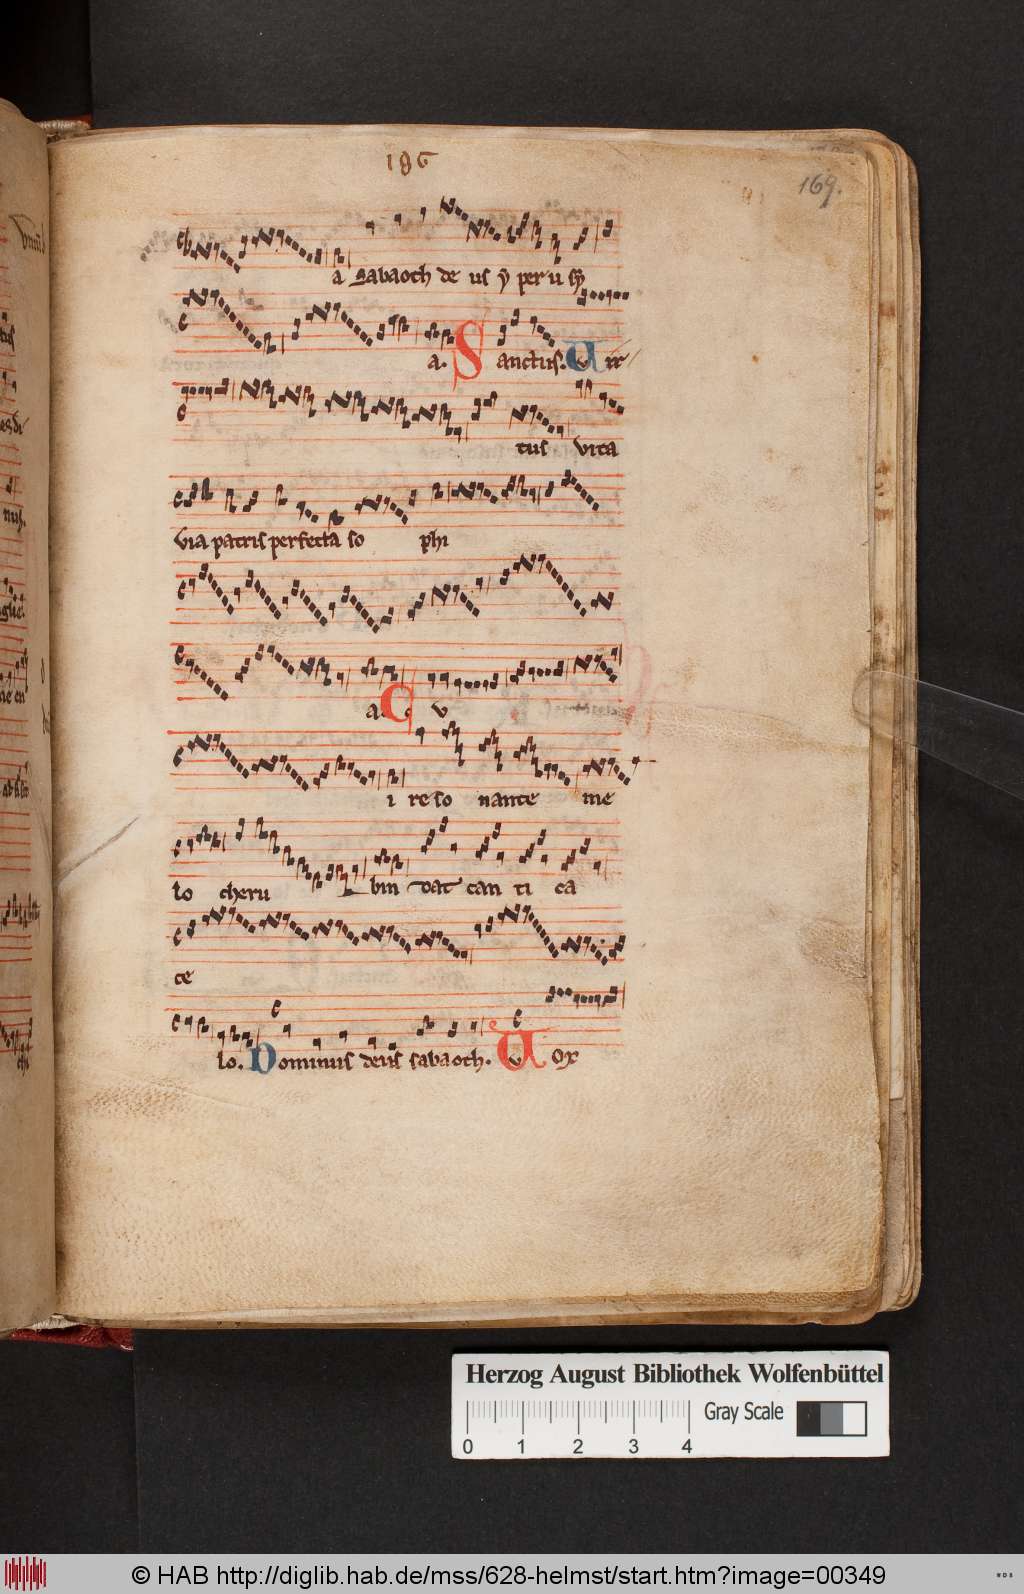 186
169.
a Sabaoch de us ÿ per u sꝫ
a. Sanctus. Vir
tus vita
via patris perfecta so phi
a. C v
i reso nante me
lo cheru bin dat can ti ca
ce
lo. Dominus deus sabaoch. Vox
Herzog August Bibliothek Wolfenbüttel
Gray Scale
0 1 2 3 4
© HAB http://diglib.hab.de/mss/628-helmst/start.htm?image=00349